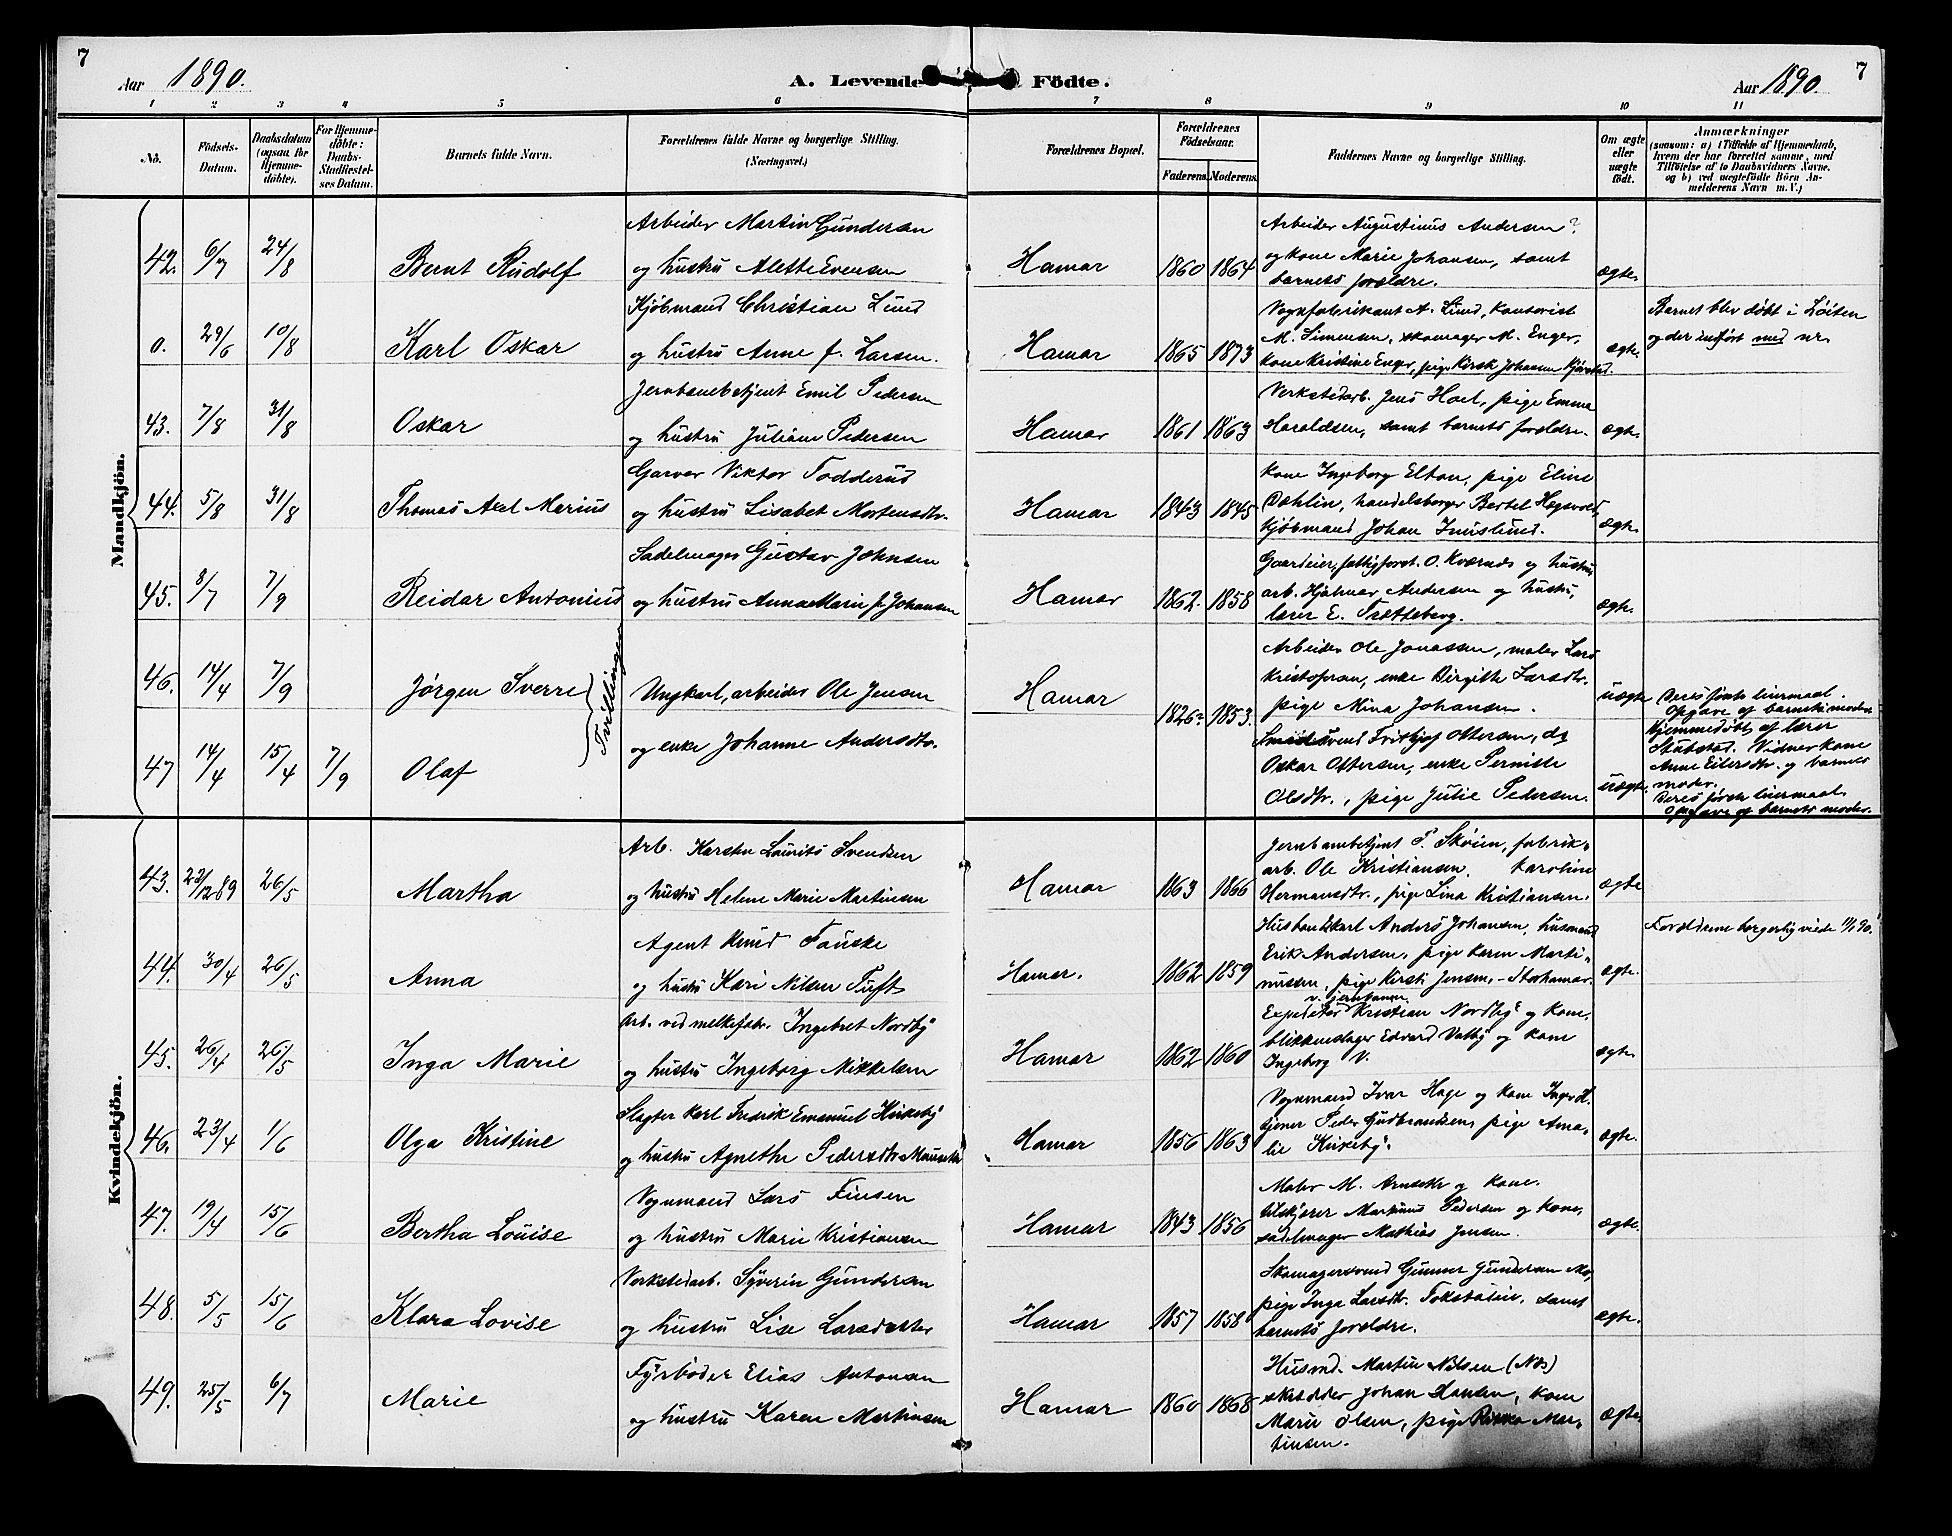 7
Aar 1890.
A. Levende Födte.
Aar 1890.
7
1 2 3 4 5 6 7 8 9 10 11
No.
Födsels-Datum.
Daabsdatum (ogsaa for Hjemme-döbte).
For Hjemme-döbte: Daabs-Stadfæstel-ses Datum.
Barnets fulde Navn.
Forældrenes fulde Navne og borgerlige Stilling. (Næringsvei.)
Forældrenes Bopæl.
Forældrenes Födselsaar.
Faderens. Moderens.
Faddernes Navne og borgerlige Stilling.
Om ægte eller uægte födt.
Anmærkninger
(saasom: a) i Tilfælde af Hjemmedaab, hvem der har forrettet samme, med Tilföielse af to Daabsvidners Navne, og b) ved uægtefödte Börn An-melderens Navn m. V.)
Mandkjön.
42. 6/7 24/8 Bernt Rudolf
Arbeider Martin Gundersen
og hustru Alette Evensen
Hamar 1860 1864
Arbeider Augustinus Andersen?
og kone Marie Johansen, samt
barnets forældre.
ægte.
0. 29/6 10/8 Karl Oskar
Kjøbmand Christian Lund
og hustru Anne f. Larsen.
Hamar 1865 1873
Vognfabrikant A. Lund, kontorist
M. Simensen, skomager M. Enger,
kone Kristine Enger, pige Kirsti Johansen
ægte.
Barnet blev døbt i Löiten
og der indført med nr.
43. 7/8 31/8 Oskar
Jernbanebetjent Emil Pedersen
og hustru Juliane Pedersen
Hamar 1861 1863
Verkstedarb. Jens Hoel, pige Emma
Haraldsen, samt barnets forældre.
ægte.
44. 5/8 31/8 Thomas Axel Marius
Garver Viktor Fodderud
og hustru Lisabet Mortensdtr.
Hamar 1843 1845
Kone Ingeborg Elton, pige Eline
Dæhlin, handelsborger Bertel
kjøbmand Johan
ægte.
45. 8/7 7/9 Reidar Antonius
Sadelmager Gustav Johnsen
og hustru Anna Marie f. Johansen
Hamar 1862. 1858
Gaardeier, fattigforst. O. Kværnes og hustru,
arb. Hjalmar Andersen og hustru,
lærer E. Trætteberg.
ægte.
46. 14/4 7/9 Jørgen Sverre
Tvillinger
Ungkarl, arbeider Ole Jensen
og enke Johanne Andersdtr.
Hamar 1826? 1853.
Arbeider Ole Jonassen, maler Lars
Kristofersen, enke Birgithe Larsdtr.
pige Mina Johansen.
uægte
Deres første leiermaal.
Opgave af barnets moder.
47 14/4 15/4 7/9 Olaf
Smedsvend Frithjof Ottersen, do
Oskar Ottersen, enke Pernille
Olsdtr., pige Julie Pedersen.
uægte.
Hjemmedøbt af lærer
Stubstad. Vidner kone
Anne Eilersdtr. og barnets
moder.
Deres første leiermaal.
Opgave af barnets moder.
Kvindekjön.
43. 23/12 89 26/5 Martha
Arb. Karsten Laurits Svendsen
og hustru Helene Marie Martinsen
Hamar 1863 1866
Jernbanebetjent P. Skøien, fabrik-
arb. Ole Kristiansen. Karoline
Hermansdtr., pige Lina Kristiansen.
ægte
44. 30/4 26/5 Anna
Agent Knud Fauske
og hustru Kari Nilsen Tuft
Hamar. 1862 1859
Husbondkarl Anders Johansen, husmand
Erik Andersen, pige Karen Marti-
nussen, pige Kirsti Jensen, - Storhamar.
ægte.
Forældrene borgerlig viede 11/1 90.
45. 26/4 26/5 Inga Marie
Arb. ved melkefabr. Ingebret Nordby
og hustru Ingeborg Mikkelsen
Hamar 1862 1860
v. jernbanen
Expeditør Kristian Nordby og kone,
blikkenslager Edvard Valby og kone
Ingeborg V.
ægte.
46. 23/4 1/6 Olga Kristine
Slagter Karl Fredrik Emanuel Kirkeby
og hustru Agnethe Pedersdtr.
Hamar 1856 1863
Vognmand Ivar Hage og kone Ingeb. H.
tjener Peder Gudbrandsen, pige Ama-
lie Kirkeby.
ægte.
47. 19/4 15/6 Bertha Louise
Vognmand Lars Finsen
og hustru Marie Kristiansen
Hamar 1843 1856
Maler M. Arneseke og kone,
tilskjærer Martinus Pedersen og kone,
sadelmager Mathias Jensen.
ægte.
48. 5/5 15/6 Klara Lovise
Verkstedarb. Syverin Gundersen
og hustru Lise Larsdatter
Hamar 1857 1858
Skomagersvend Gunner Gundersen
pige Inga Larsdtr. Fokstuen, samt
barnets forældre.
ægte.
49. 25/5 6/7 Marie
Fyrbøder Elias Antonsen
og hustru Karen Martinsen
Hamar 1860 1868
Husmd. Martin Nilsen (Næs)
skrædder Johan Hansen, kone
Marie Olsen, pige Mar-
tinsen.
ægte.